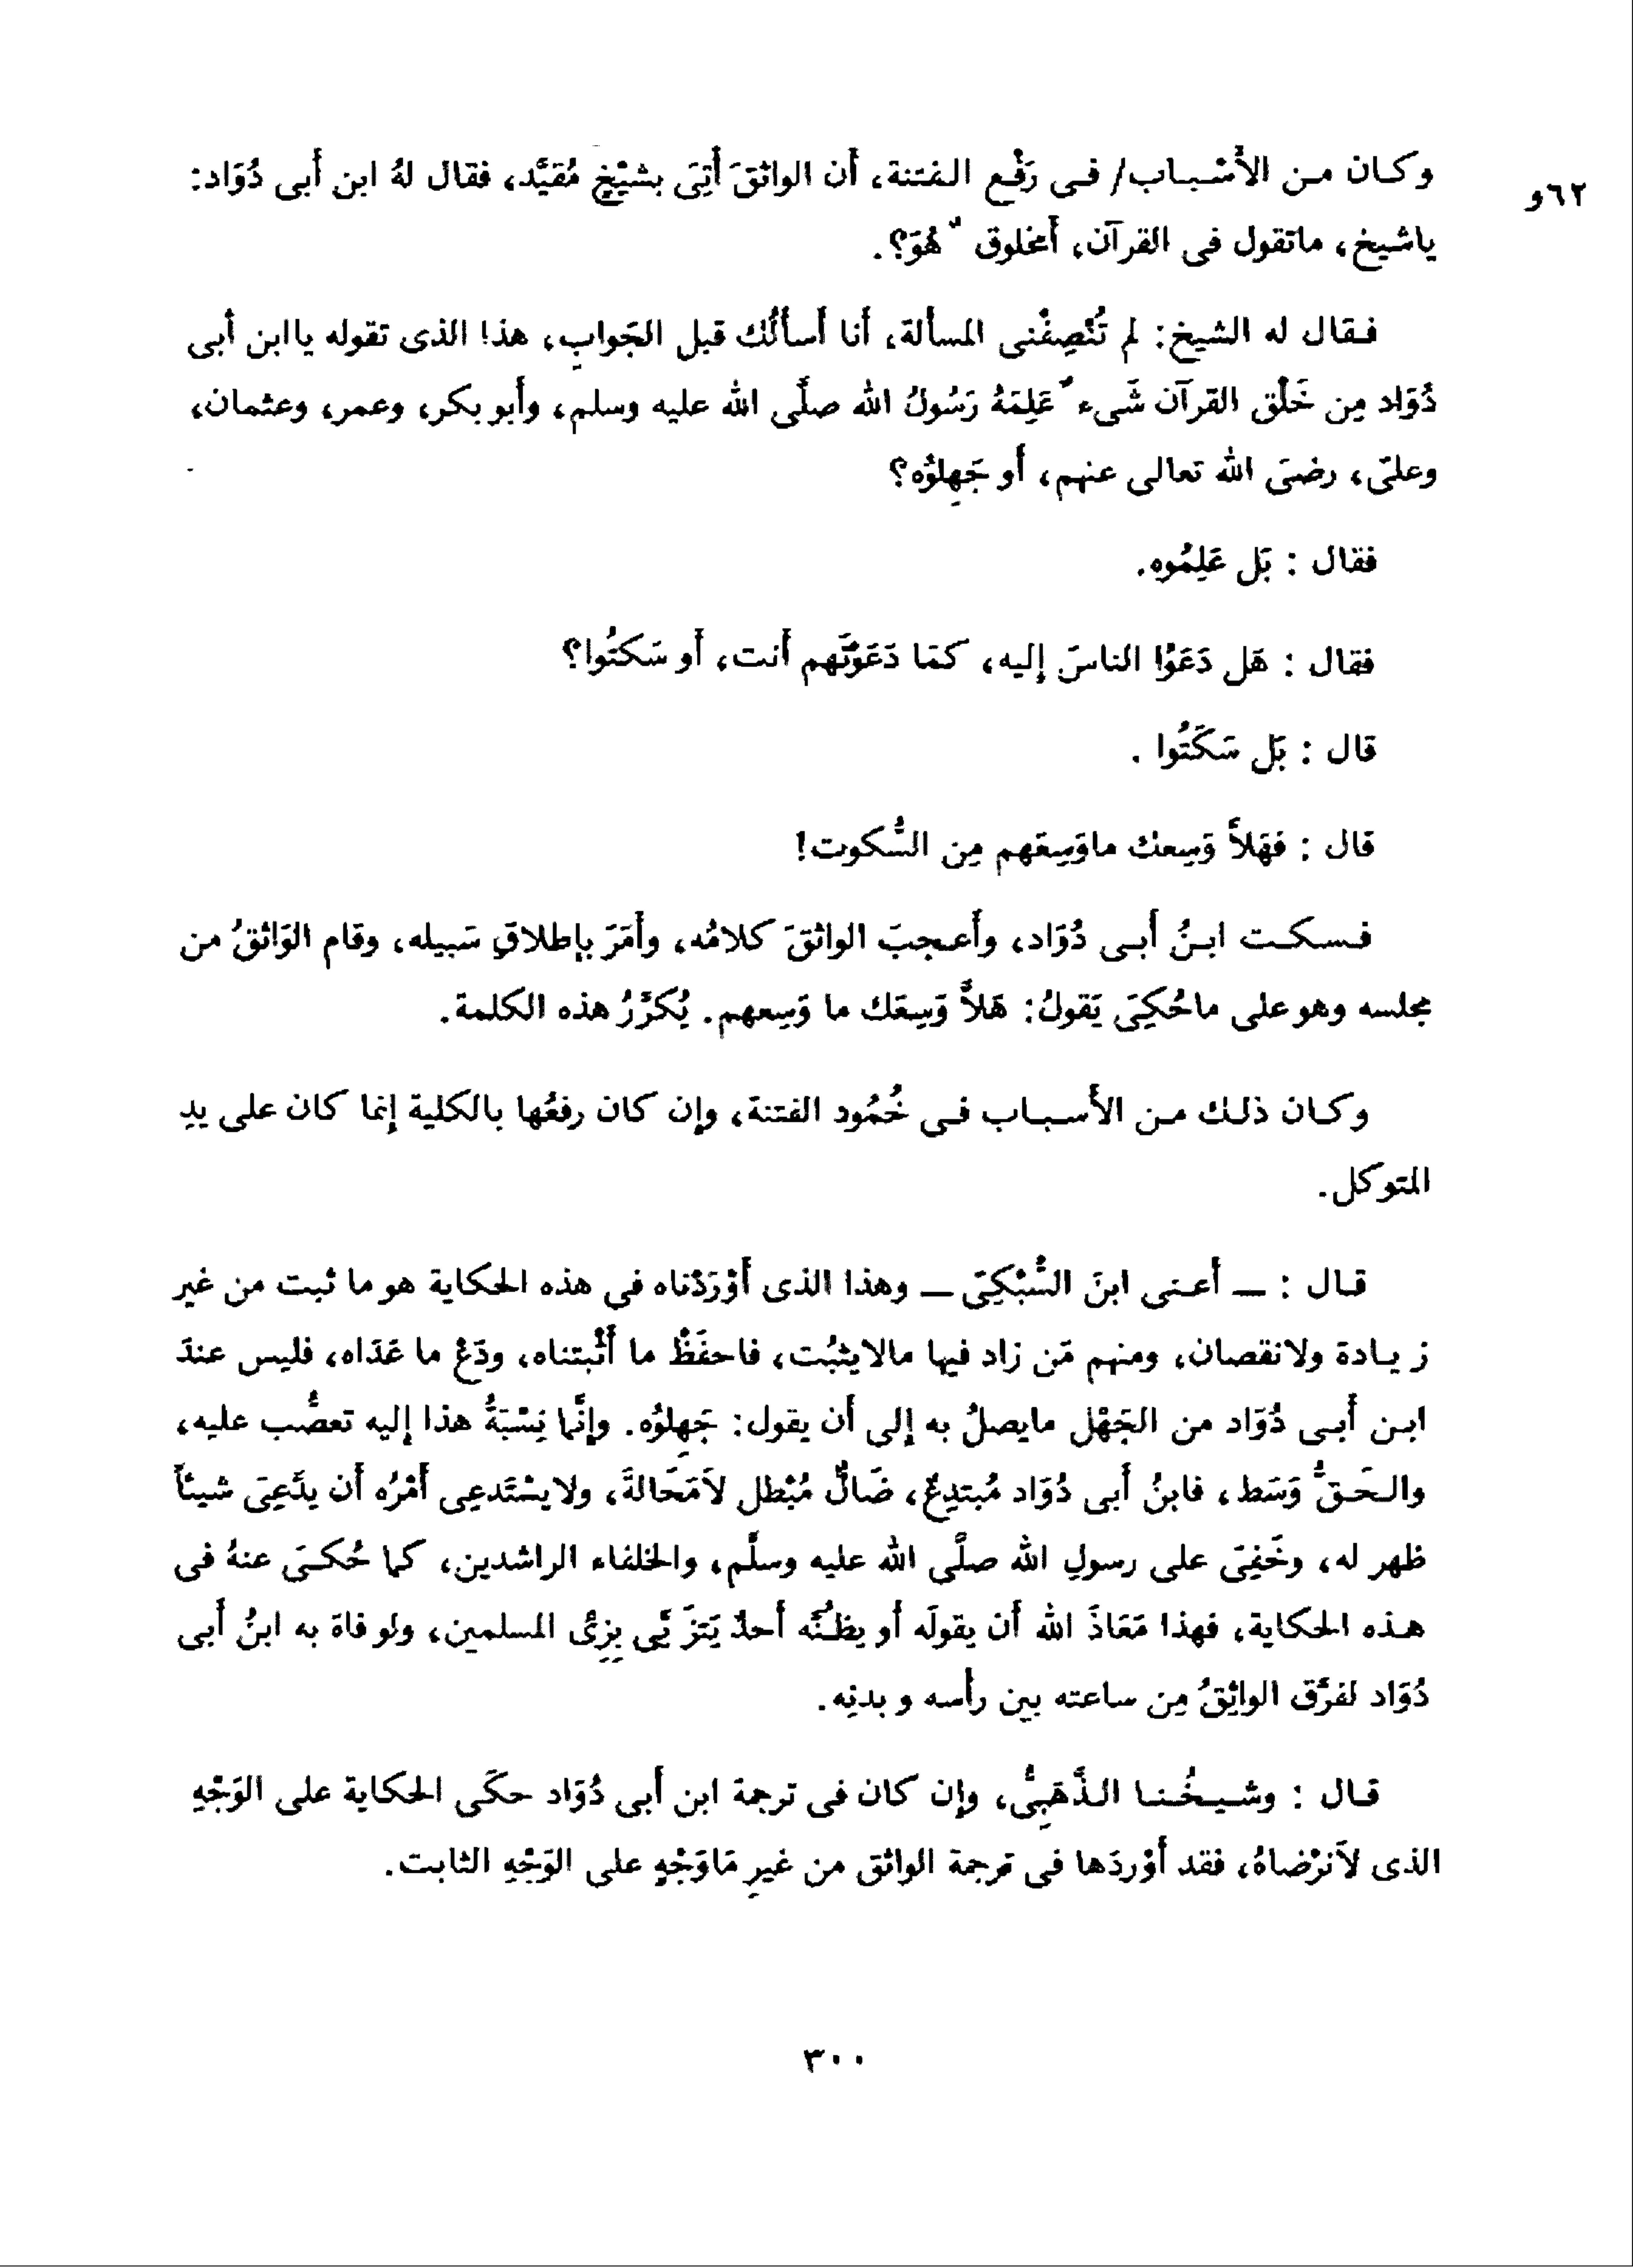 وكان من الأسْباب/ فى رَفْع الفتنة، أن الواثقَ أُتِىَ بشيْخٍ مُقيَّد، فقال لهُ ابن أبى دُوَاد:
٦٢و
ياشيخ، ماتقول فى القرآن، أمخلوقٌ هُوَ؟.
فقال له الشيخ: لم تُنْصِفْنى المسألة، أنا أسألُك قبل الجَوابِ، هذا الذى تقوله ياابن أبى
دُوَاد مِن خَلْق القرآن شَىءٌ عَلِمَهُ رَسُولُ الله صلَّى الله عليه وسلم، وأبوبكر، وعمر، وعثمان،
وعلىّ، رضىَ الله تعالى عنهم، أو جَهِلوُه؟
فقال : بَل عَلِمُوه.
فقال : هَل دَعَوْا الناسَ إليه، كمَا دَعَوْتَهم أنت، أو سَكتُوا؟
قال : بَل سَكَتُوا .
قال : فهَلاَّ وَسِعك ماوَسِعَهم مِن السُّكوت!
فسكت ابنُ أبى دُوَاد، وأعجبَ الواثقَ كلامُه، وأمَرَ بإطلاقِ سَبيله، وقام الوَاثقُ من
مجلسه وهو على ماحُكِىَ يَقولُ: هَلاَّ وَسِعَك ما وَسِعهم. يُكرِّرُ هذه الكلمة.
وكان ذلك من الأسباب فى خُمُود الفتنة، وإن كان رفعُها بالكلية إنما كان على يدِ
المتوكل.
قال : ــ أعنى ابنَ السُّبْكِىّ ــ وهذا الذى أوْرَدْناه فى هذه الحكاية هو ما ثبت من غير
زيادة ولانقصان، ومنهم مَن زاد فيها مالايثبُت، فاحفَظْ ما أثْبتناه، ودَعْ ما عَدَاه، فليس عندَ
ابن أبى دُوَاد من الجَهْل مايصلُ به إلى أن يقول: جَهِلوُه. وإنَّما نِسْبَةُ هذا إليه تعصُّب عليه،
والحَقُّ وَسَط، فابنُ أبى دُوَاد مُبتدِعٌ، ضَالٌّ مُبْطل لاَمَحَالةَ، ولايسْتَدعِى أمْرُه أن يدَّعِىَ شيئاً
ظهر له، وخَفِىَ على رسولِ الله صلَّى الله عليه وسلَّم، والخلفاء الراشدين، كما حُكىَ عنهُ فى
هذه الحكاية، فهذا مَعَاذَ الله أن يقولَه أو يظنَّه أحدٌ يَتزَيَّى بِزِىِّ المسلمين، ولو فاهَ به ابنُ أبى
دُوَاد لفرَّق الواثِقُ مِن ساعته بين رأسه وبدنِه.
قال : وشيخُنا الذَّهَبِىُّ، وإن كان فى ترجمة ابن أبى دُوَاد حكَى الحكاية على الوَجْهِ
الذى لاَنرْضاهُ، فقد أوْردَها فى ترجمة الواثق من غيرِ مَاوَجْهٍ على الوَجْهِ الثابت.
٣٠٠